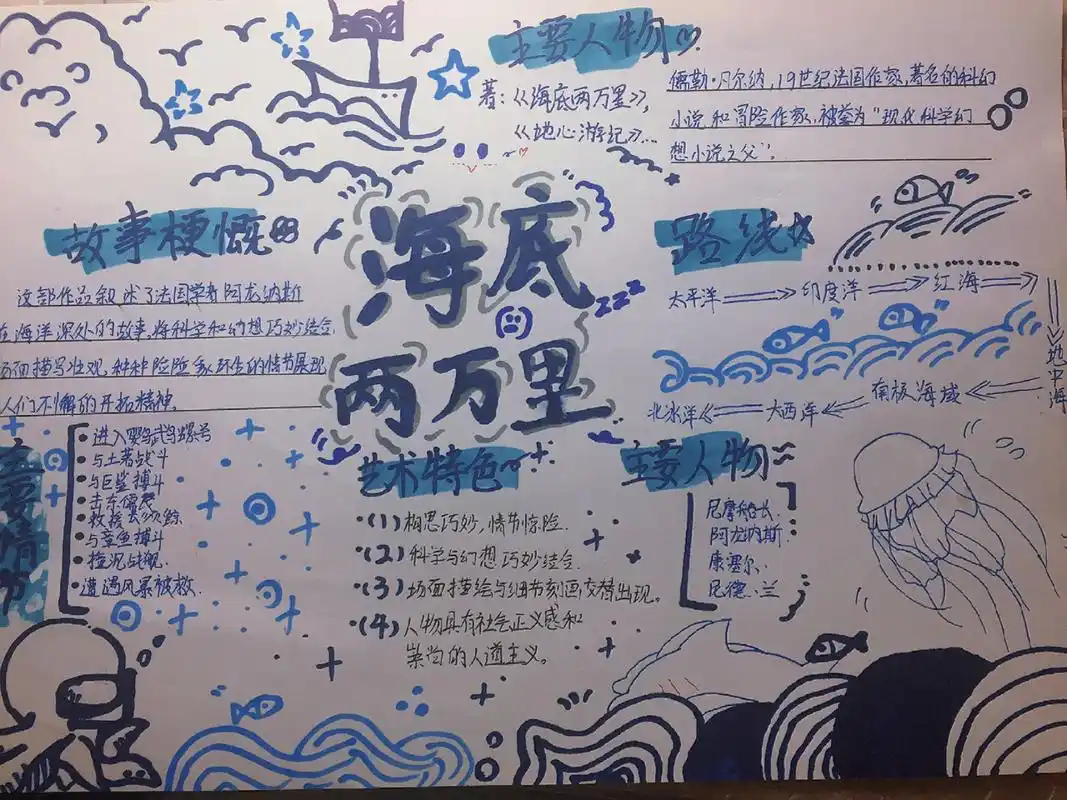 主要人物
著：《海底两万里》，
《地心游记》…
儒勒·凡尔纳，19世纪法国作家，著名的科幻
小说和冒险作家，被誉为“现代科学幻
想小说之父”。
海底
两万里
zzz
故事梗慨
这部作品叙述了法国学者阿龙纳斯
在海洋深处的故事，将科学和幻想巧妙结合
场面描写壮观，种种险险象环生的情节展现
人们不懈的开拓精神。
路线
太平洋
印度洋
红海
地中海
南极海域
大西洋
北冰洋
主要情节
进入鹦鹉螺号
与土著战斗
与巨鲨搏斗
击杀儒艮
救援长须鲸
与章鱼搏斗
撞沉战舰
遭遇风暴被救
艺术特色
(1) 构思巧妙，情节惊险.
(2) 科学与幻想巧妙结合.
(3) 场面描绘与细节刻画交替出现。
(4) 人物具有社会正义感和
崇尚的人道主义。
主要人物
尼摩船长
阿龙纳斯
康塞尔
尼德·兰